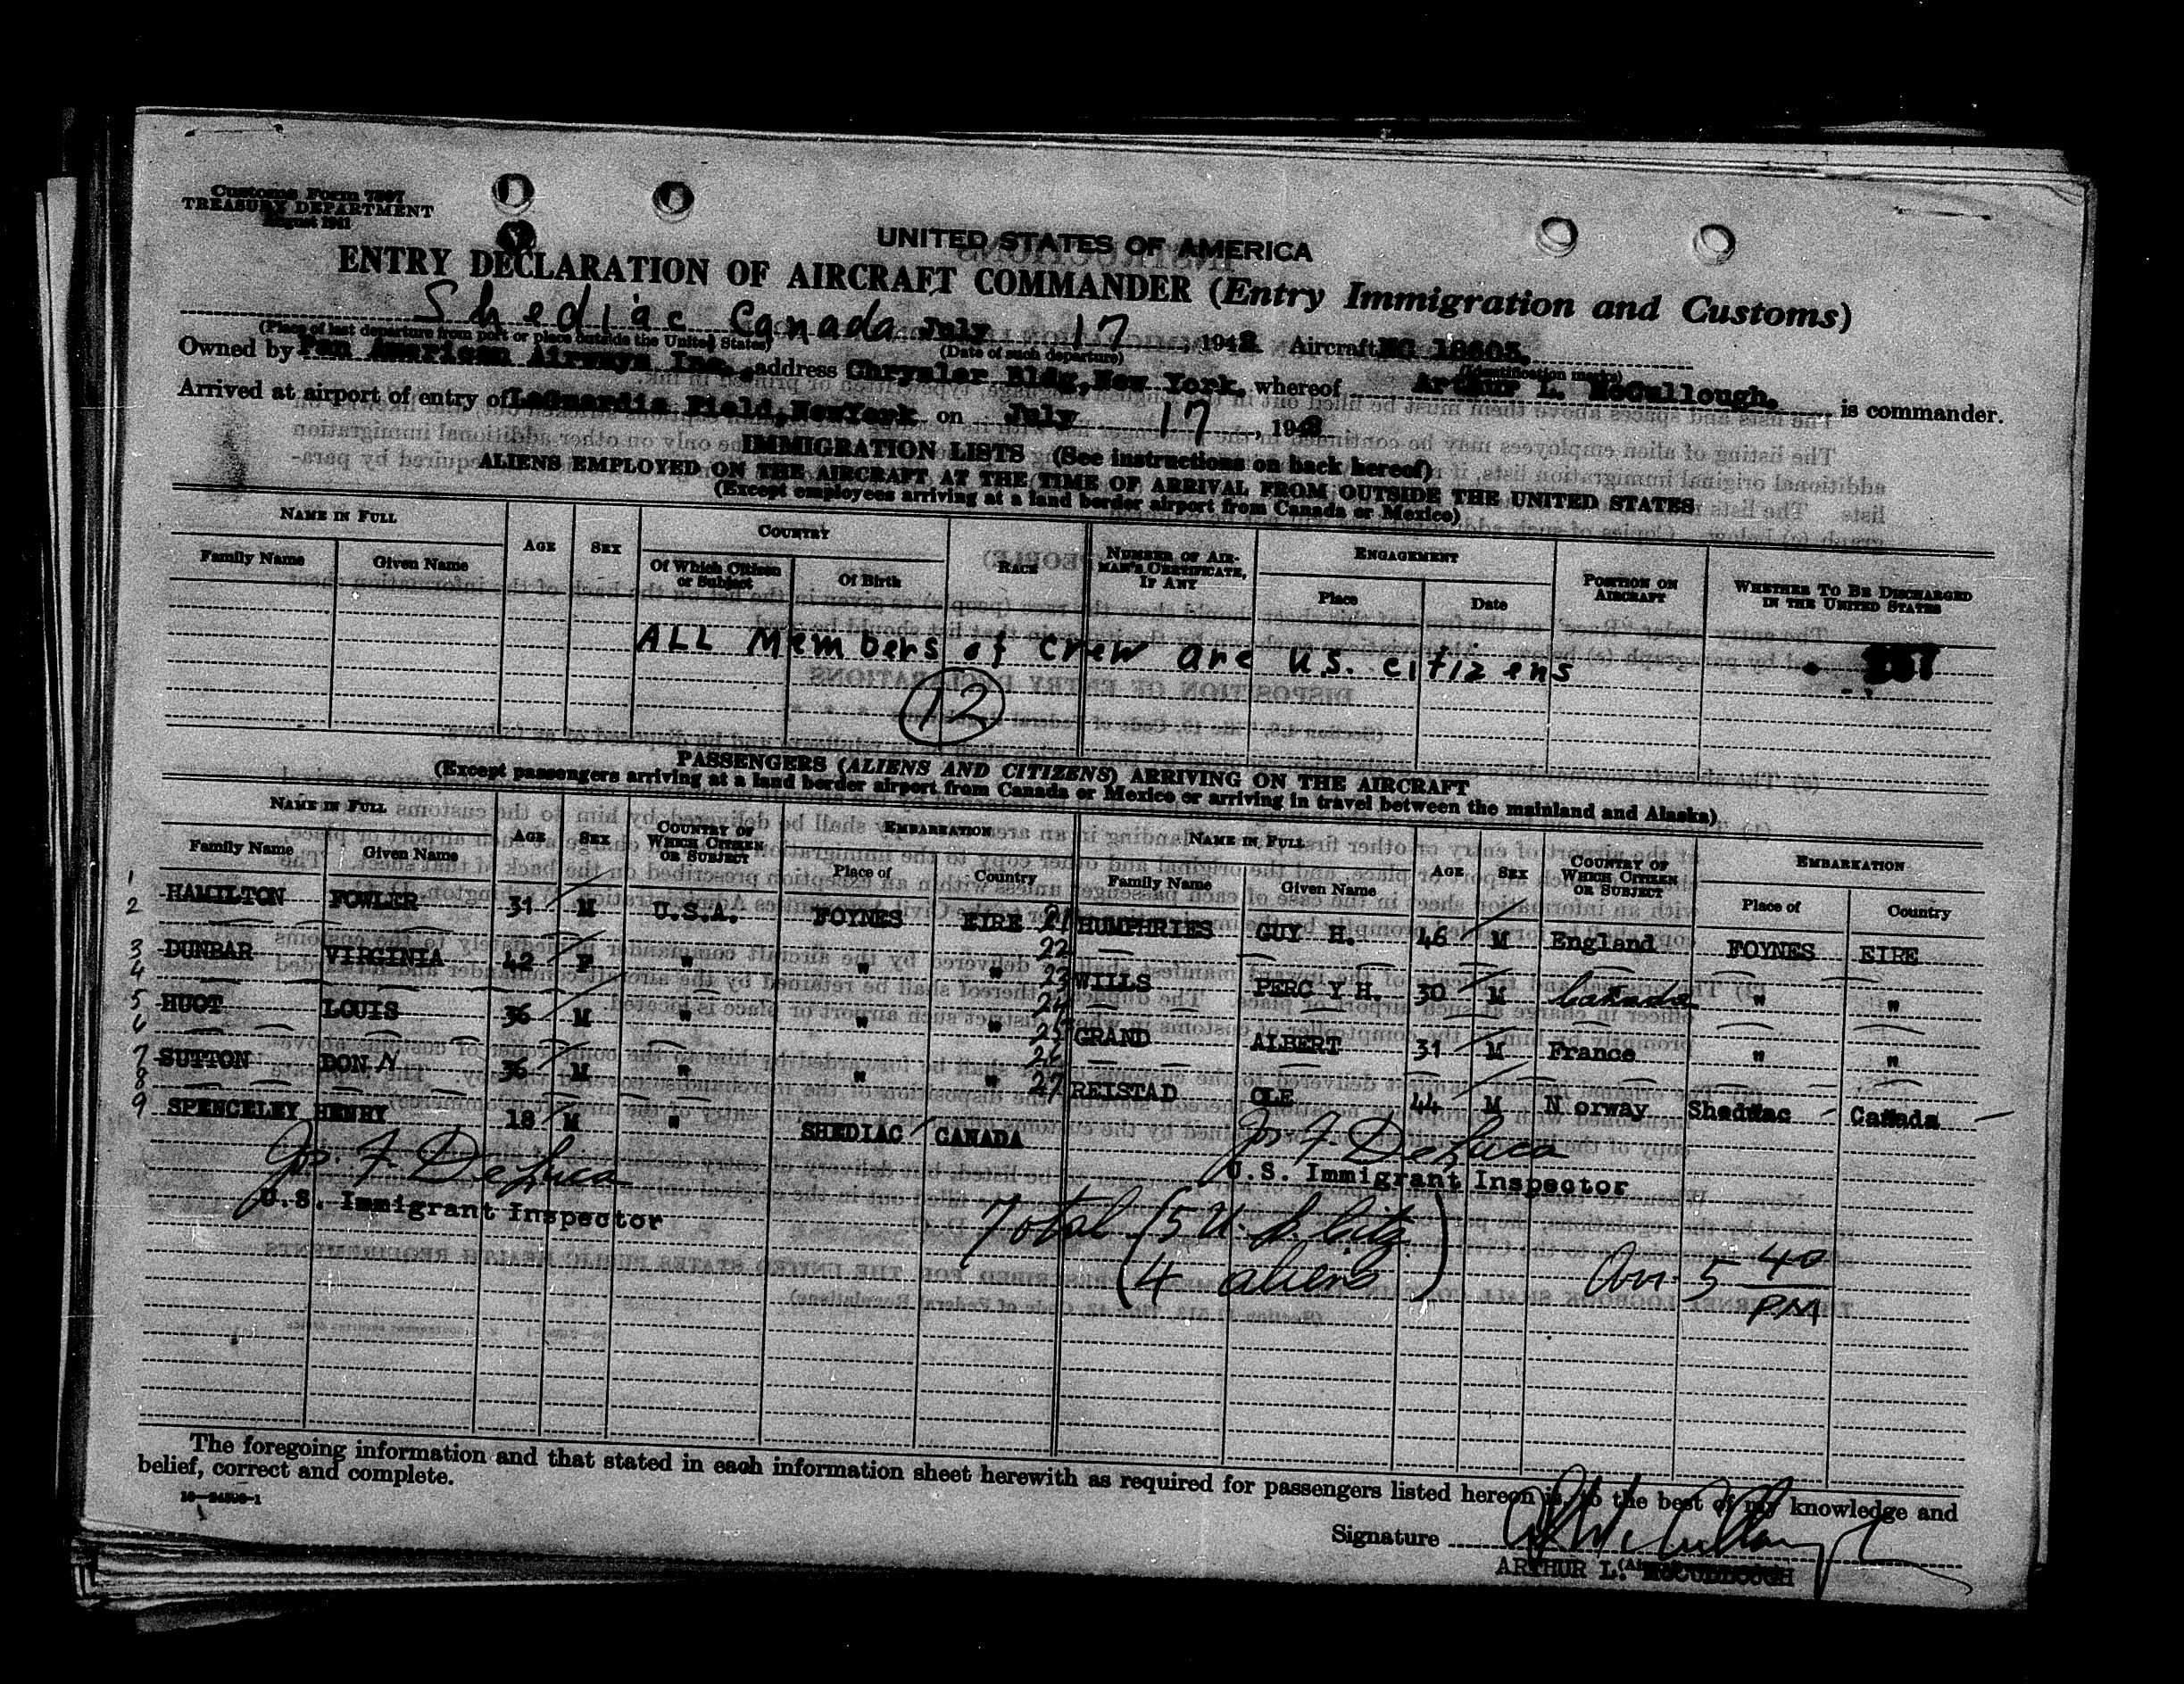 Customs Form 7507
TREASURY DEPARTMENT
August 1941
UNITED STATES OF AMERICA
ENTRY DECLARATION OF AIRCRAFT COMMANDER (Entry Immigration and Customs)
Shediac Canada July 17, 1942 Aircraft NC 18603.
(Place of last departure from port or place outside the United States) (Date of such departure) (Identification marks)
Owned by Pan American Airways Inc., address Chrysler Bldg, New York, whereof Arthur L. McCullough, is commander.
Arrived at airport of entry of LaGuardia Field, NewYork on July 17, 1942
IMMIGRATION LISTS (See instructions on back hereof)
ALIENS EMPLOYED ON THE AIRCRAFT AT THE TIME OF ARRIVAL FROM OUTSIDE THE UNITED STATES
(Except employees arriving at a land border airport from Canada or Mexico)
NAME IN FULL AGE SEX COUNTRY RACE NUMBER OF AIRMAN'S CERTIFICATE, IF ANY ENGAGEMENT POSITION ON AIRCRAFT WHETHER TO BE DISCHARGED IN THE UNITED STATES
Family Name Given Name Of Which Citizen or Subject Of Birth Place Date
ALL Members of crew are U.S. citizens
12
PASSENGERS (ALIENS AND CITIZENS) ARRIVING ON THE AIRCRAFT
(Except passengers arriving at a land border airport from Canada or Mexico or arriving in travel between the mainland and Alaska)
NAME IN FULL AGE SEX COUNTRY OF WHICH CITIZEN OR SUBJECT EMBARKATION NAME IN FULL AGE SEX COUNTRY OF WHICH CITIZEN OR SUBJECT EMBARKATION
Family Name Given Name Place of Country Family Name Given Name Place of Country
1 HAMILTON FOWLER 31 M U.S.A. FOYNES EIRE 21 HUMPHRIES GUY H. 46 M England FOYNES EIRE
2 22
3 DUNBAR VIRGINIA 42 F " " " 23 WILLS PERC Y H. 30 M Canada " "
4 24
5 HUOT LOUIS 36 M " " " 25 GRAND ALBERT 31 M France " "
6 26
7 SUTTON DON N 36 M " " " 27 REISTAD OLE 44 M N orway Shediac Canada
8
9 SPENCELEY HENRY 18 M " SHEDIAC CANADA
Jos. F DeLuca Jos F DeLuca
U.S. Immigrant Inspector U.S. Immigrant Inspector
Total (5 U.S. Citz)
(4 aliens) Arr. 5 40 PM
The foregoing information and that stated in each information sheet herewith as required for passengers listed hereon is, to the best of my knowledge and
belief, correct and complete.
Signature
ARTHUR L. McCULLOUGH